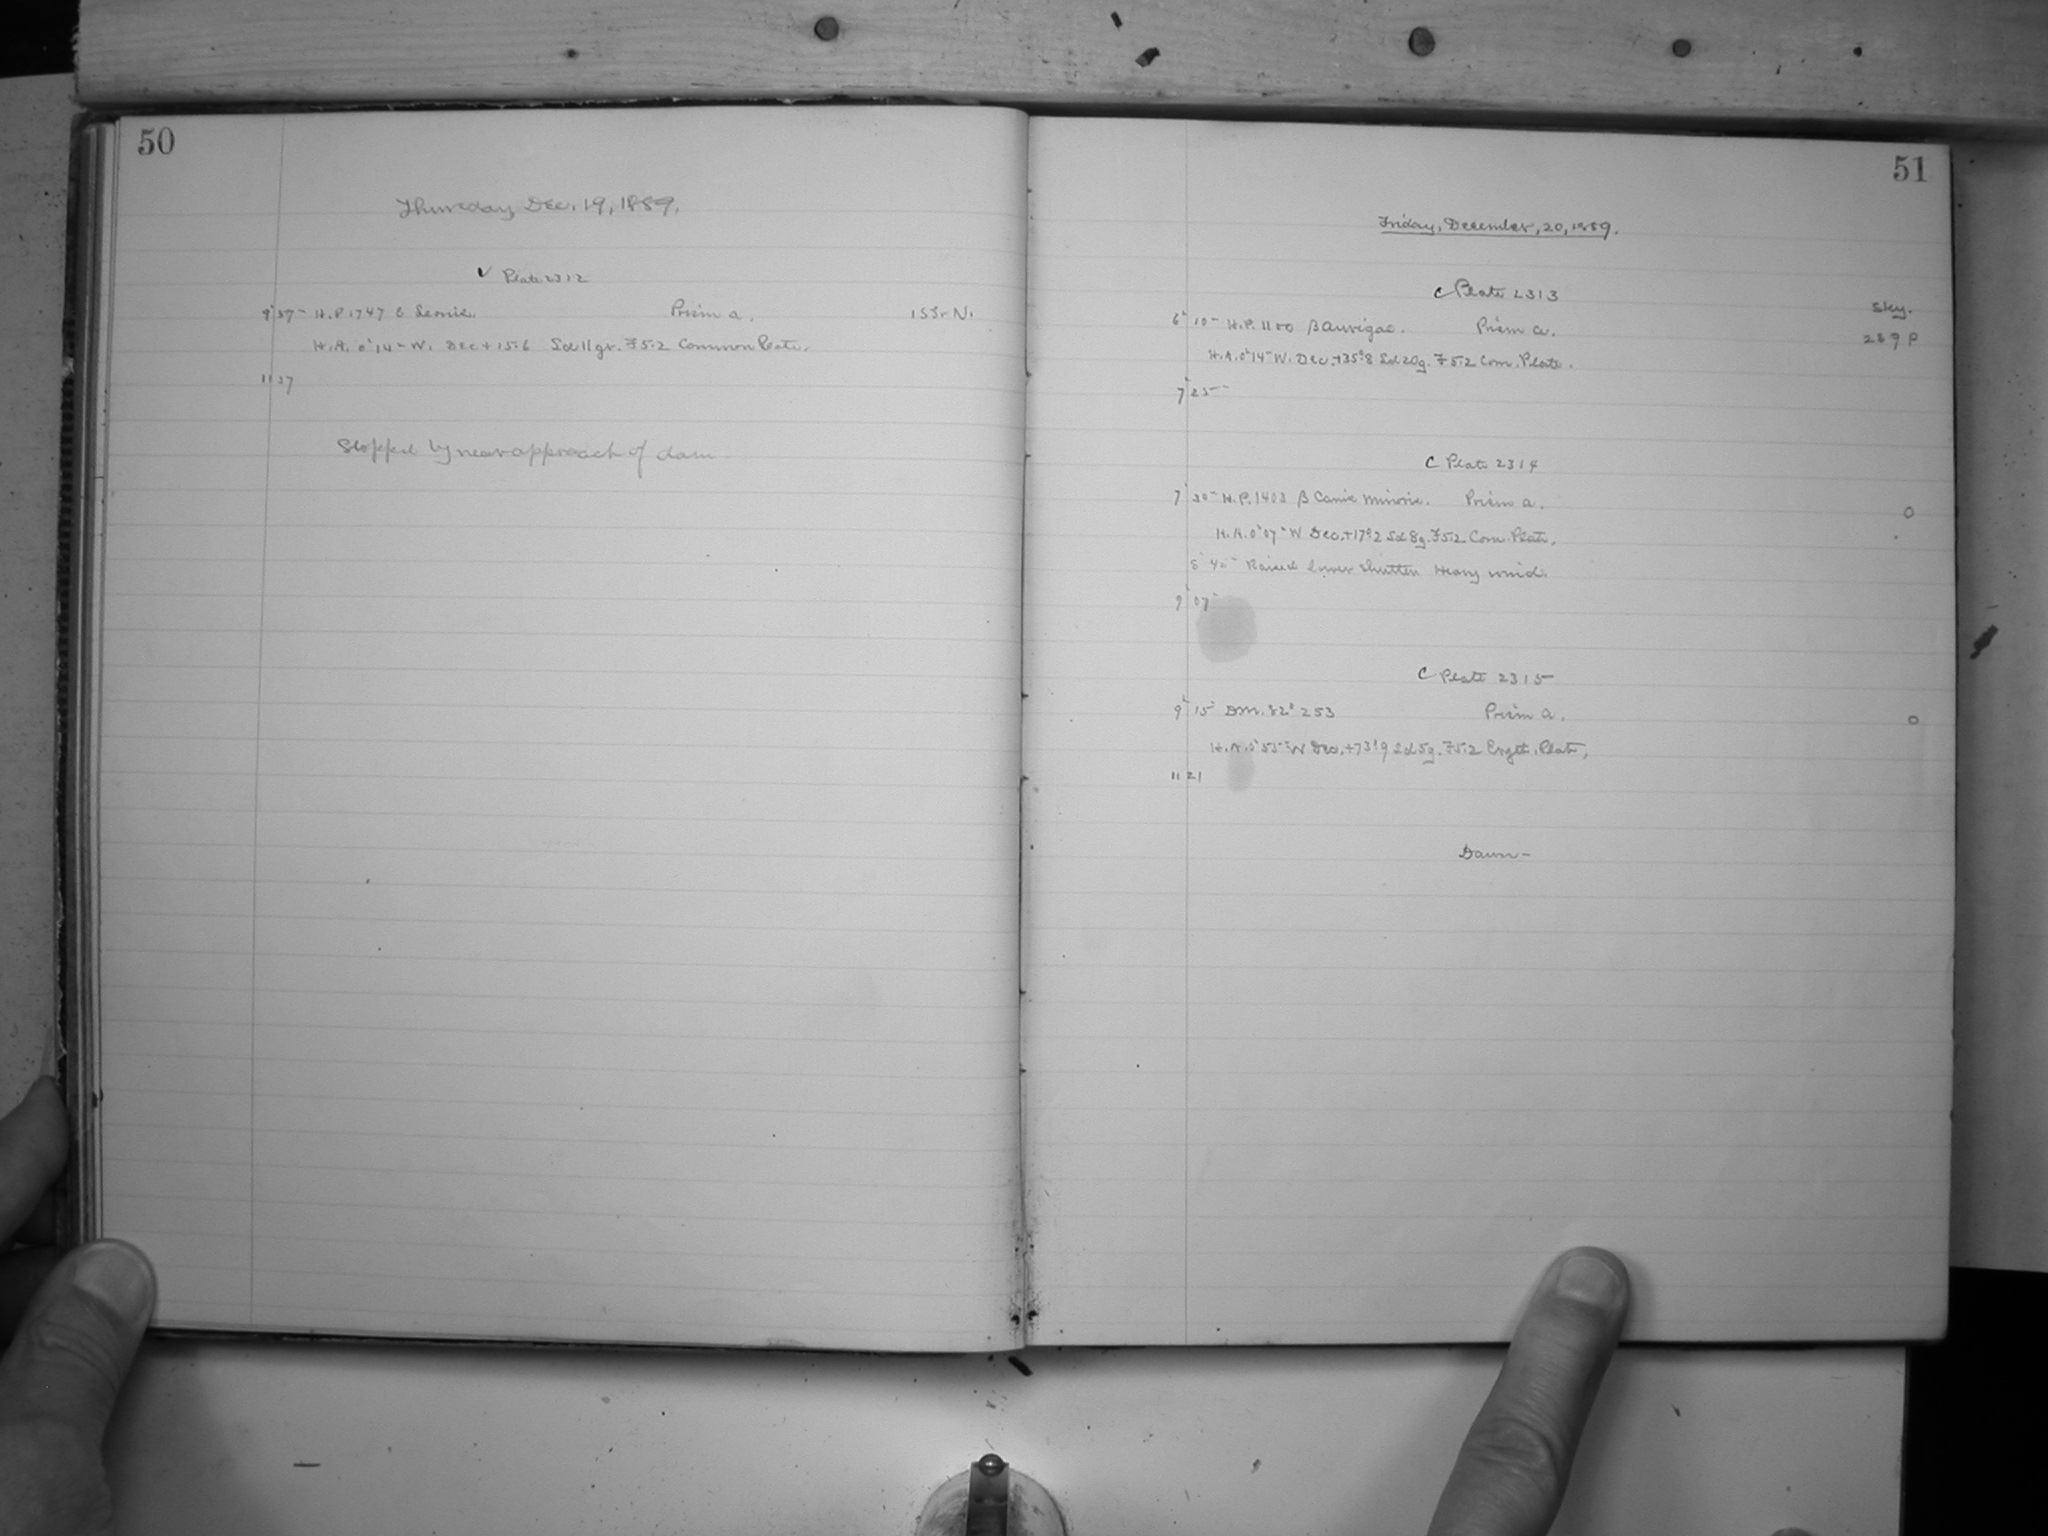 50
Thursday, Dec. 19, 1889.
✓ Plate 2312
9 37 H.P. 1747 Leonis. Prism a. N.
H.A. 0 14 W. Dec +15.6 Scl 11 gr. F 5.2 Common Plate.
11 37
Stopped by near approach of dawn
51
Friday, December, 20, 1889.
C Plate 2313
Sky.
6 10 H.P. 1100 β Aurigae. Prism a. 289 P
H.A. 0 14 W. Dec. +35°8 Scl 20g. F 5.2 Com. Plate.
7 25
C Plate 2314
7 30 H.P. 1403 β Canis Minoris. Prism a. 0
H.A. 0 07 W Dec. +17°2 Scl 8g. F 5.2 Com. Plate.
8 40 Raised lower shutter Heavy wind.
9 07
C Plate 2315
9 15 DM. 82° 253 Prism a. 0
H.A. 0 55 W Dec. +73°9 Scl 5g. F 5.2 Plate,
11 21
Dawn -